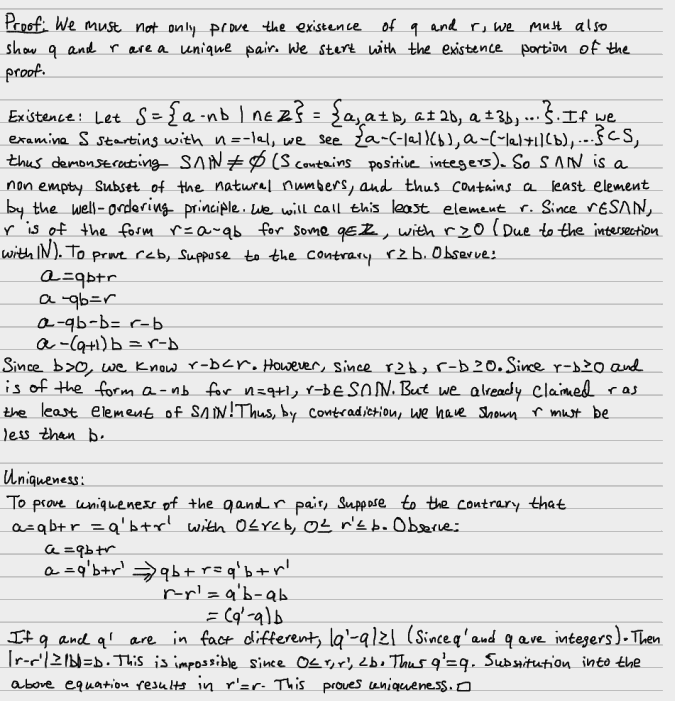 Proof: We must not only prove the existence of q and r, we must also
show q and r are a unique pair. We start with the existence portion of the
proof.
Existence: Let S = {a-nb | n∈ℤ} = {a, a±b, a±2b, a±3b, ...}. If we
examine S starting with n=-|a|, we see {a-(-|a|)(b), a-(-|a|+1)(b), ...}⊂S,
thus demonstrating S∩ℕ≠∅ (S contains positive integers). So S∩ℕ is a
non empty subset of the natural numbers, and thus contains a least element
by the well-ordering principle. We will call this least element r. Since r∈S∩ℕ,
r is of the form r=a-qb for some q∈ℤ, with r≥0 (Due to the intersection
with ℕ). To prove r<b, suppose to the contrary r≥b. Observe:
a=qb+r
a-qb=r
a-qb-b=r-b
a-(q+1)b=r-b
Since b>0, we know r-b<r. However, since r≥b, r-b≥0. Since r-b≥0 and
is of the form a-nb for n=q+1, r-b∈S∩ℕ. But we already claimed r as
the least element of S∩ℕ! Thus, by contradiction, we have shown r must be
less than b.
Uniqueness:
To prove uniqueness of the q and r pair, suppose to the contrary that
a=qb+r=q'b+r' with 0≤r<b, 0≤r'≤b. Observe:
a=qb+r
a=q'b+r' ⟹ qb+r=q'b+r'
r-r'=q'b-qb
=(q'-q)b
If q and q' are in fact different, |q'-q|≥1 (Since q' and q are integers). Then
|r-r'|≥|b|=b. This is impossible since 0≤r,r',<b. Thus q'=q. Substitution into the
above equation results in r'=r. This proves uniqueness. □